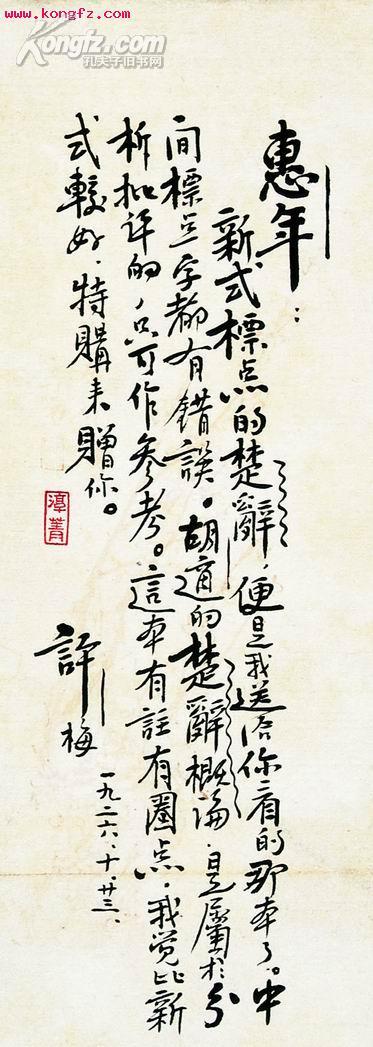 www.kongfz.com
Kongfz.com
孔夫子旧书网
惠年：
新式標点的楚辭，便是我送給你看的那本了。中
间標点字都有錯誤。胡適的楚辭概論，是屬於分
析批评的，只可作参考。這本有註有圈点，我觉比新
式較好，特購来贈你。
許梅
一九二六、十、廿三、